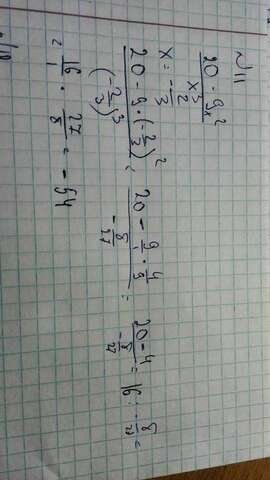 №11
(20 - 9x²)/x³
x = -2/3
(20 - 9 · (-2/3)²)/(-2/3)³ = (20 - 9/1 · 4/9)/(-8/27) = (20 - 4)/(-8/27) = 16 : -8/27 =
= 16/1 · 27/8 = -54